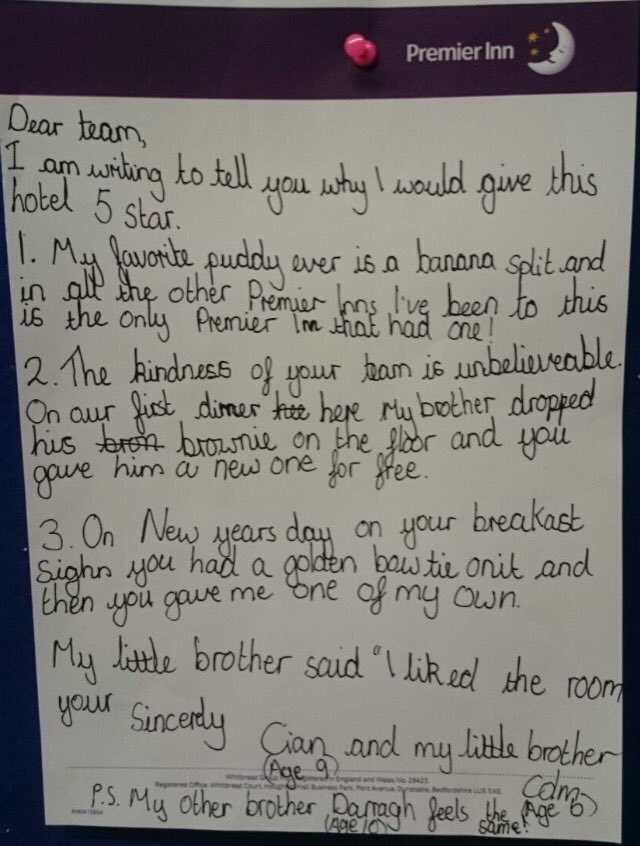 Premier Inn
Dear team,
I am writing to tell you why I would give this
hotel 5 star.
1. My favorite puddy ever is a banana split and
in all the other Premier Inns I've been to this
is the only Premier Inn that had one!
2. The kindness of your team is unbelieveable.
On our first dinner here My brother dropped
his bron brownie on the floor and you
gave him a new one for free.
3. On New years day on your breakast
sighn you had a golden bow tie on it and
then you gave me one of my own.
My little brother said "I liked the room
your Sincerly
Cian and my little brother
(Age 9) Colm
(Age 6)
Whitbread Group PLC Registered in England and Wales No. 29423
Registered Office: Whitbread Court, Houghton Hall Business Park, Porz Avenue, Dunstable, Bedfordshire LU5 5XE.
P.S. My other brother Darragh feels the same!
(Age 10)